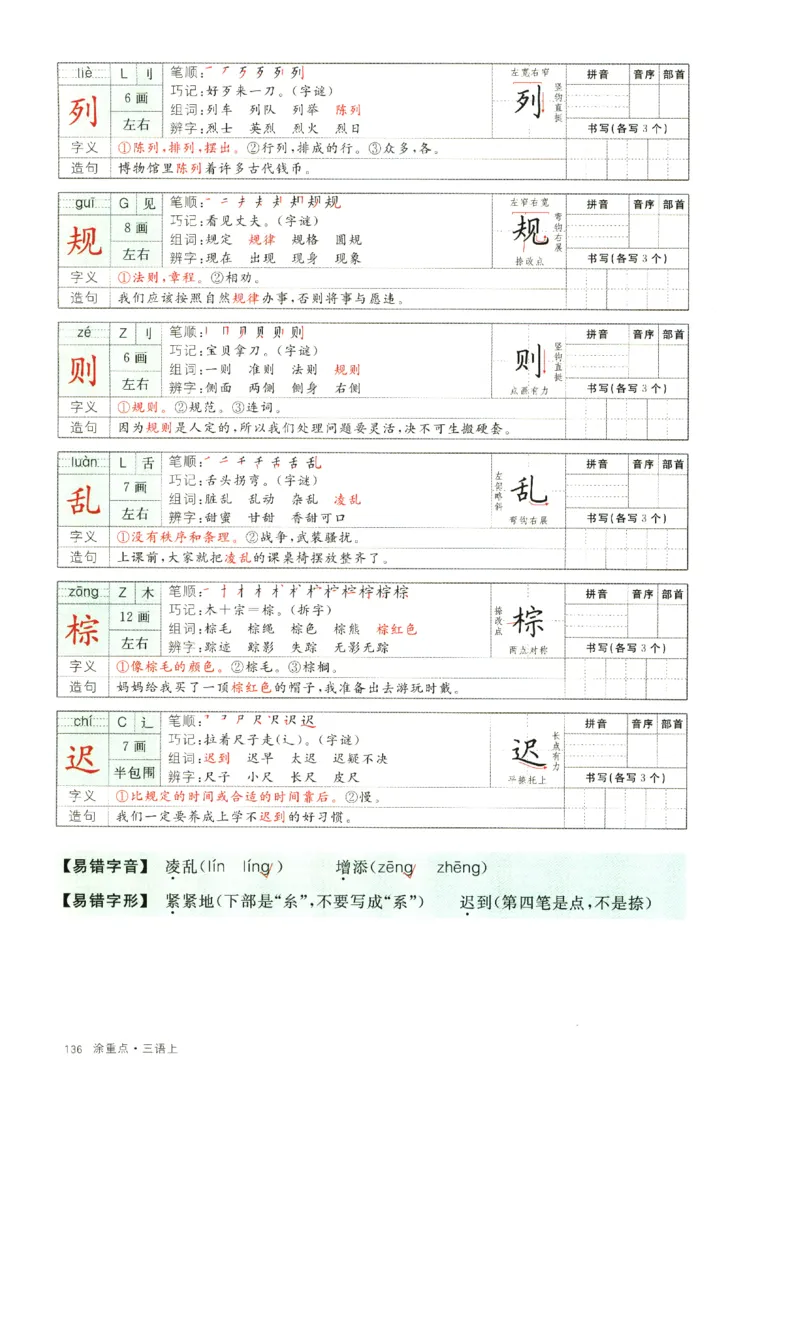 liè L 刂 笔顺:一 ア 歹 歹 列 列 左宽右窄 拼音 音序 部首
列 6画 巧记:好歹来一刀。(字谜) 列 竖钩直挺
组词:列车 列队 列举 陈列
左右 辨字:烈士 英烈 烈火 烈日 书写(各写3个)
字义 ①陈列,排列,摆出。②行列,排成的行。③众多,各。
造句 博物馆里陈列着许多古代钱币。
guī G 见 笔顺: 左窄右宽 拼音 音序 部首
规 8画 巧记:看见丈夫。(字谜) 规 弯钩右展
组词:规定 规律 规格 圆规
左右 辨字:现在 出现 现身 现象 捺改点 书写(各写3个)
字义 ①法则,章程。②相劝。
造句 我们应该按照自然规律办事,否则将事与愿违。
zé Z 刂 笔顺: 拼音 音序 部首
则 6画 巧记:宝贝拿刀。(字谜) 则 竖钩直挺
组词:一则 准则 法则 规则
左右 辨字:侧面 两侧 侧身 右侧 点画有力 书写(各写3个)
字义 ①规则。②规范。③连词。
造句 因为规则是人定的,所以我们处理问题要灵活,决不可生搬硬套。
luàn L 舌 笔顺: 拼音 音序 部首
乱 7画 巧记:舌头拐弯。(字谜) 左部略斜 乱
组词:脏乱 乱动 杂乱 凌乱
左右 辨字:甜蜜 甘甜 香甜可口 弯钩右展 书写(各写3个)
字义 ①没有秩序和条理。②战争,武装骚扰。
造句 上课前,大家就把凌乱的课桌椅摆放整齐了。
zōng Z 木 笔顺: 拼音 音序 部首
棕 12画 巧记:木+宗=棕。(拆字) 捺改点 棕
组词:棕毛 棕绳 棕色 棕熊 棕红色
左右 辨字:踪迹 踪影 失踪 无影无踪 两点对称 书写(各写3个)
字义 ①像棕毛的颜色。②棕毛。③棕榈。
造句 妈妈给我买了一顶棕红色的帽子,我准备出去游玩时戴。
chí C 辶 笔顺: 拼音 音序 部首
迟 7画 巧记:拉着尺子走(辶)。(字谜) 迟 长点有力
组词:迟到 迟早 太迟 迟疑不决
半包围 辨字:尺子 小尺 长尺 皮尺 平捺托上 书写(各写3个)
字义 ①比规定的时间或合适的时间靠后。②慢。
造句 我们一定要养成上学不迟到的好习惯。
【易错字音】 凌乱(lín líng✓) 增添(zēng✓ zhēng)
【易错字形】 紧紧地(下部是“糸”,不要写成“系”) 迟到(第四笔是点,不是捺)
136 涂重点·三语上